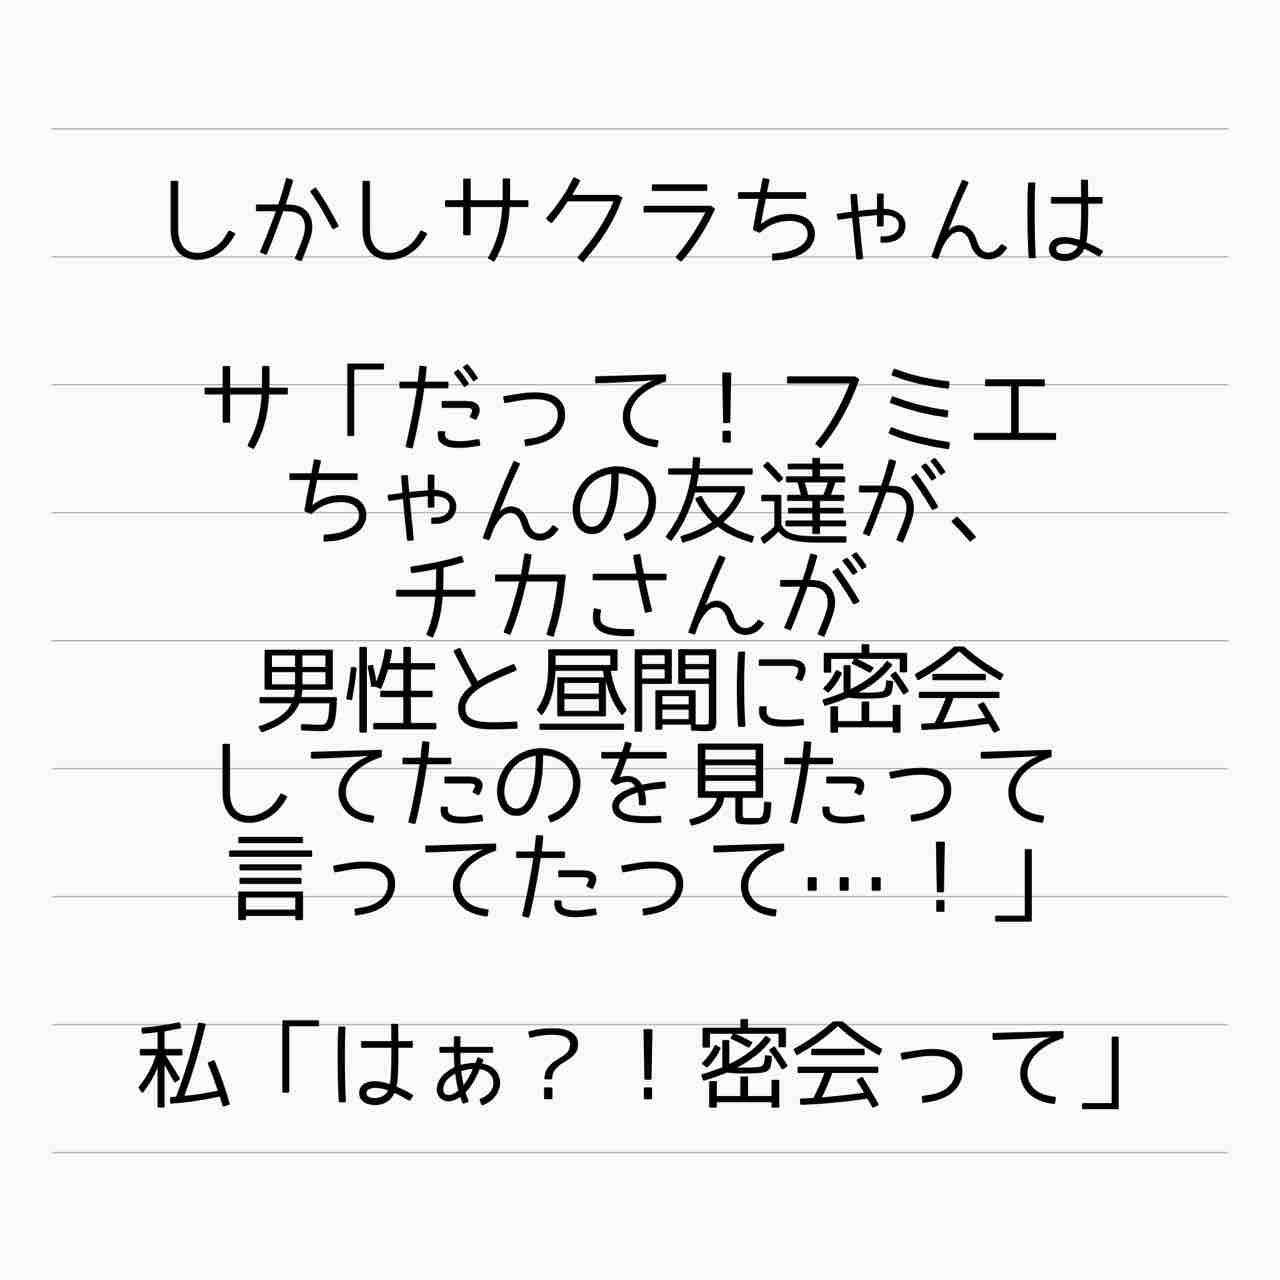 しかしサクラちゃんは
サ「だって！フミエ
ちゃんの友達が、
チカさんが
男性と昼間に密会
してたのを見たって
言ってたって…！」
私「はぁ？！密会って」